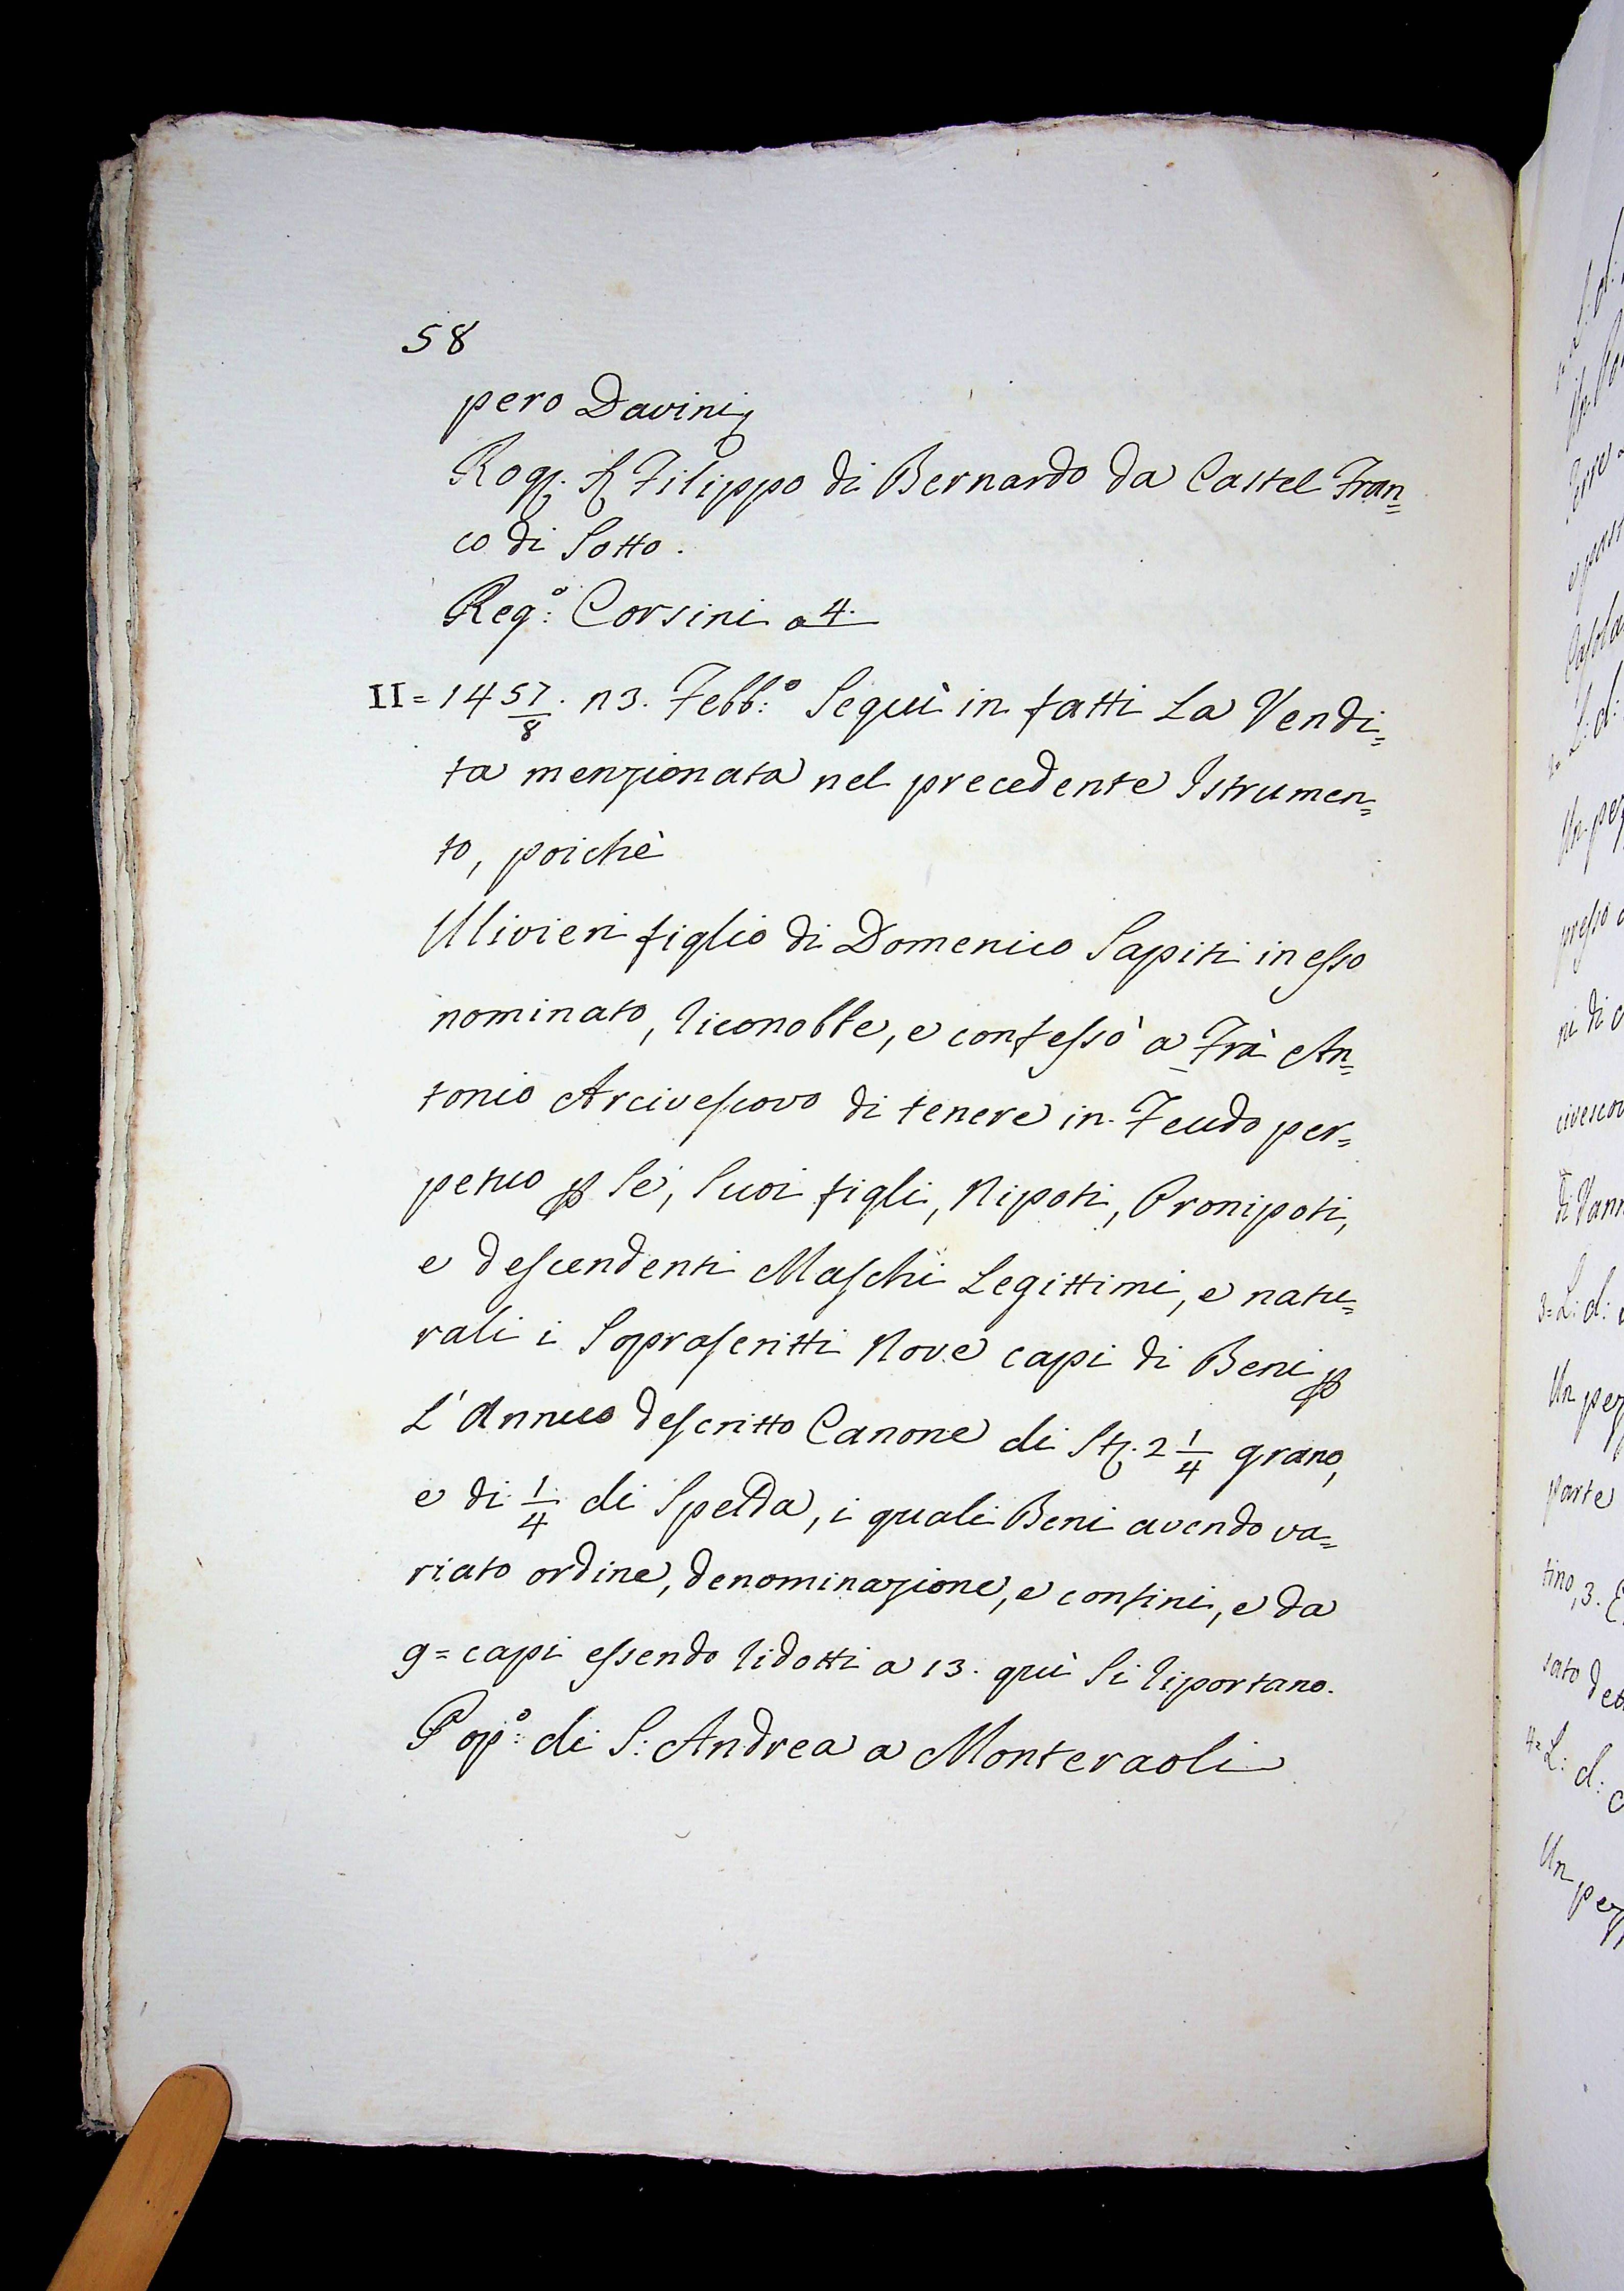 58
pero Davinj
Rog. Filippo di Bernardo da Castel Fran=
co di Sotto.
Reg.º: Corsini a 4.
II = 1457/8. n 3. Febb:º Seguì in fatti La Vendi=
ta menzionata nel precedente Istrumen=
to, poichè
Ulivieri figlio di Domenico Sapiti in esso
nominato, riconobbe, e confessò a Frà An=
tonio Arcivescovo di tenere in Feudo per=
petuo ꝑ Sè, Suoi figli, Nipoti, Pronipoti,
e descendenti Maschi Legittimi, e natu=
rali i Soprascritti Nove capi di Beni ꝑ
L'Annuo descritto Canone di St. 2 1/4 grano,
e di 1/4 di Spelda, i quali Beni avendo va=
riato ordine, denominazione, e confini, e da
9 = capi essendo ridotti a 13. quì Si riportano.
Pop:º di S: Andrea a Monteraoli
Un pez
presso
ni di
civescov
di Vann
3= L: d:
Un pez
parte
tino, 3.
sato
4= L: d:
Un pez